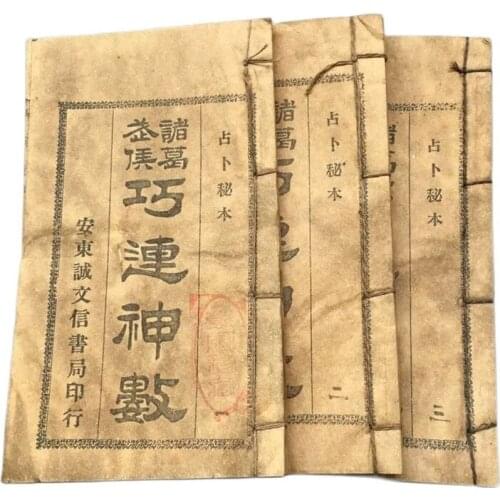 占卜秘本
一
諸葛武侯
巧連神數
安東誠文信書局印行
占卜秘本
二
諸葛
占卜秘本
三